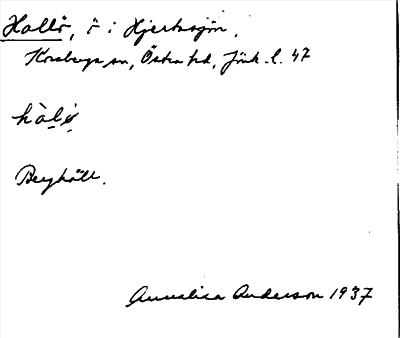 Hallö, ö i Hjertasjön.
Korsberga sn, Östra hd, Jönk. l. 47
hàlö
Berghäll.
Annalisa Anderson 1937